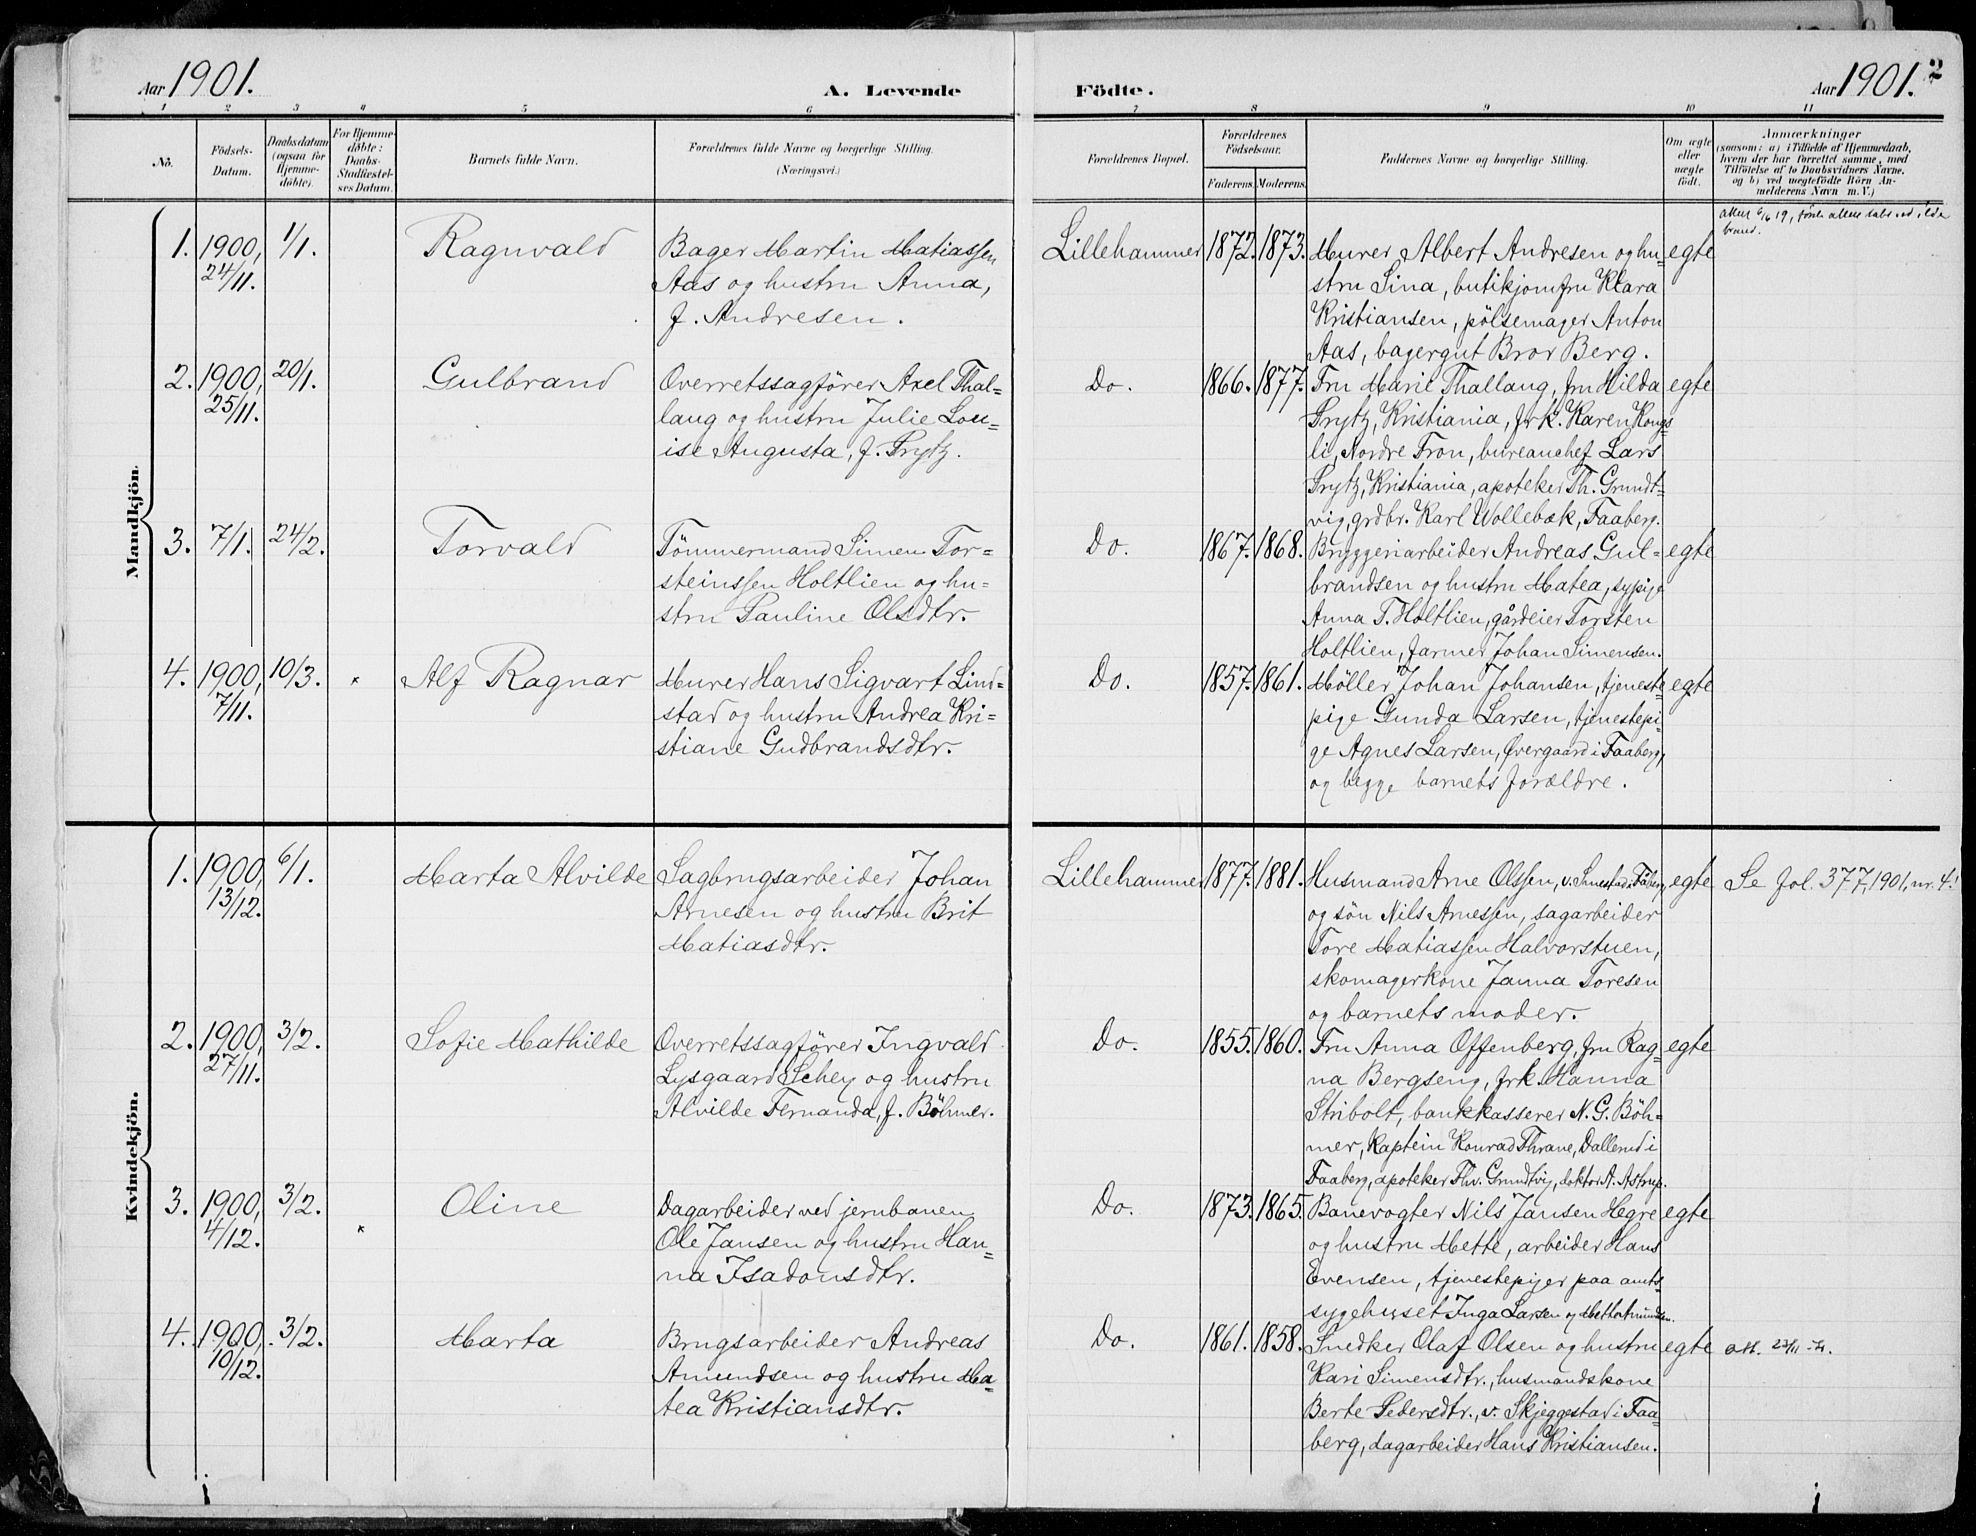 Aar 1901.
A. Levende
Födte.
Aar 1901.
2
1 2 3 4 5 6 7 8 9 10 11
No.
Födsels-
Datum.
Daabsdatum
(ogsaa for
Hjemme-
döbte).
For Hjemme-
döbte:
Daabs-
Stadfæstel-
ses Datum.
Barnets fulde Navn.
Forældrenes fulde Navne og borgerlige Stilling.
(Næringsvei.)
Forældrenes Bopæl.
Forældrenes
Födselsaar.
Faderens. Moderens.
Faddernes Navne og borgerlige Stilling.
Om ægte
eller
uægte
födt.
Anmærkninger
(saasom: a) i Tilfælde af Hjemmedaab,
hvem der har forrettet samme, med
Tilföielse af to Daabsvidners Navne.
og b) ved uægtefödte Börn An-
melderens Navn m. V.)
Mandkjön.
1. 1900,
24/11.
1/1.
Ragnvald
Bager Martin Matiassen
Aas og hustru Anna,
f. Andresen.
Lillehammer
1872. 1873.
Murer Albert Andresen og hu=
stru Sina, butikjomfru Klara
Kristiansen, pölsemager Anton
Aas, bagergut Bror Berg.
egte
brand.
2. 1900,
25/11.
20/1.
Gulbrand
Overretssagförer Axel Thal=
laug og hustru Julie Lou=
ise Augusta, f. Prytz.
Do.
1866. 1877.
Fru Marie Thallaug, fru Hilda
Prytz, Kristiania, frk. Karen Kongs
li, Nordre Fron, bureauchef Lars
Prytz, Kristiania, apoteker Th. Grundt=
vig, grdbr. Karl Wollebæk, Faaberg.
egte
3. 7/1.
24/2.
Torvald
Tömmermand Simen Tor=
steinssen Holtlien og hu=
stru Pauline Olsdtr.
Do.
1867. 1868.
Bryggeriarbeider Andreas Gul=
brandsen og hustru Matea, sypige
Anna T. Holtlien, gårdeier Torsten
Holtlien, farmer Johan Simensen.
egte
4. 1900,
7/11.
10/3.
*
Alf Ragnar
Murer Hans Sigvart Lind=
stad og hustru Andrea Kri=
stiane Gudbrandsdtr.
Do.
1857. 1861.
Möller Johan Johansen, tjeneste
pige Gunda Larsen, tjenestepi=
ge Agnes Larsen, Övergaard i Faaberg,
og begge barnets forældre.
egte
Kvindekjön.
1. 1900,
13/12.
6/1.
Marta Alvilde
Sagbrugsarbeider Johan
Arnesen og hustru Brit
Matiasdtr.
Lillehammer
1877. 1881.
Husmand Arne Olssen,
og sön Nils Arnessen, sagarbeider
Tore Matiassen Halvorstuen,
skomagerkone Janna Toresen
og barnets moder.
egte
Se fol. 377, 1901, nr. 4!
2. 1900,
27/11.
3/2.
Sofie Mathilde
Overretssagförer Ingvald
Lysgaard Schey og hustru
Alvilde Fernanda, f. Böhmer.
Do.
1855. 1860.
Fru Anna Offenberg, fru Rag=
na Bergseng, frk. Hanna
Stribolt, bankkasserer N. G. Böh=
mer, Kaptein Konrad Thrane, Dallerud i
Faaberg, apoteker Thv. Grundtvig, doktor A. Astrup.
egte
3. 1900,
4/12.
3/2.
*
Oline
Dagarbeider ved jernbanen
Ole Jansen og hustru Han=
na Isadonsdtr.
Do.
1873. 1865.
Banevogter Nils Jansen Hegre
og hustru Mette, arbeider Hans
Evensen, tjenestepiger paa amts
sygehuset Inga Larsen og
egte
4. 1900,
10/12.
3/2.
Marta
Brugsarbeider Andreas
Amundsen og hustru Ma=
tea Kristiansdtr.
Do.
1861. 1858.
Snedker Olaf Olsen og hustru
Kari Simensdtr., husmandskone
Berte Pedersdtr., v. Skjeggestad i Faa=
berg, dagarbeider Hans Kristiansen.
egte